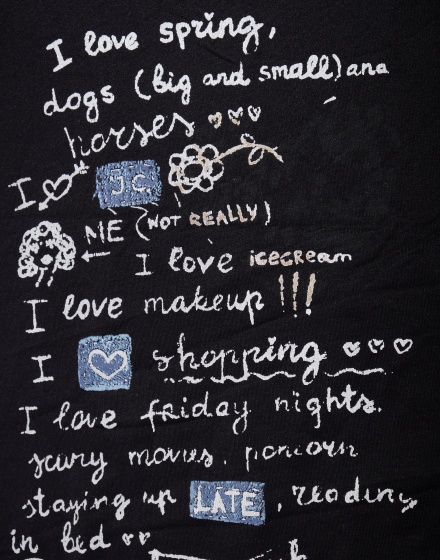 I love spring,
dogs (big and small) and
horses ♡♡♡
I ♡ J.C.
ME (NOT REALLY)
I love icecream
I love makeup !!!
I ♡ shopping ♡♡♡
I love friday nights.
scary movies, popcorn
staying up LATE, reading
in bed ♡♡